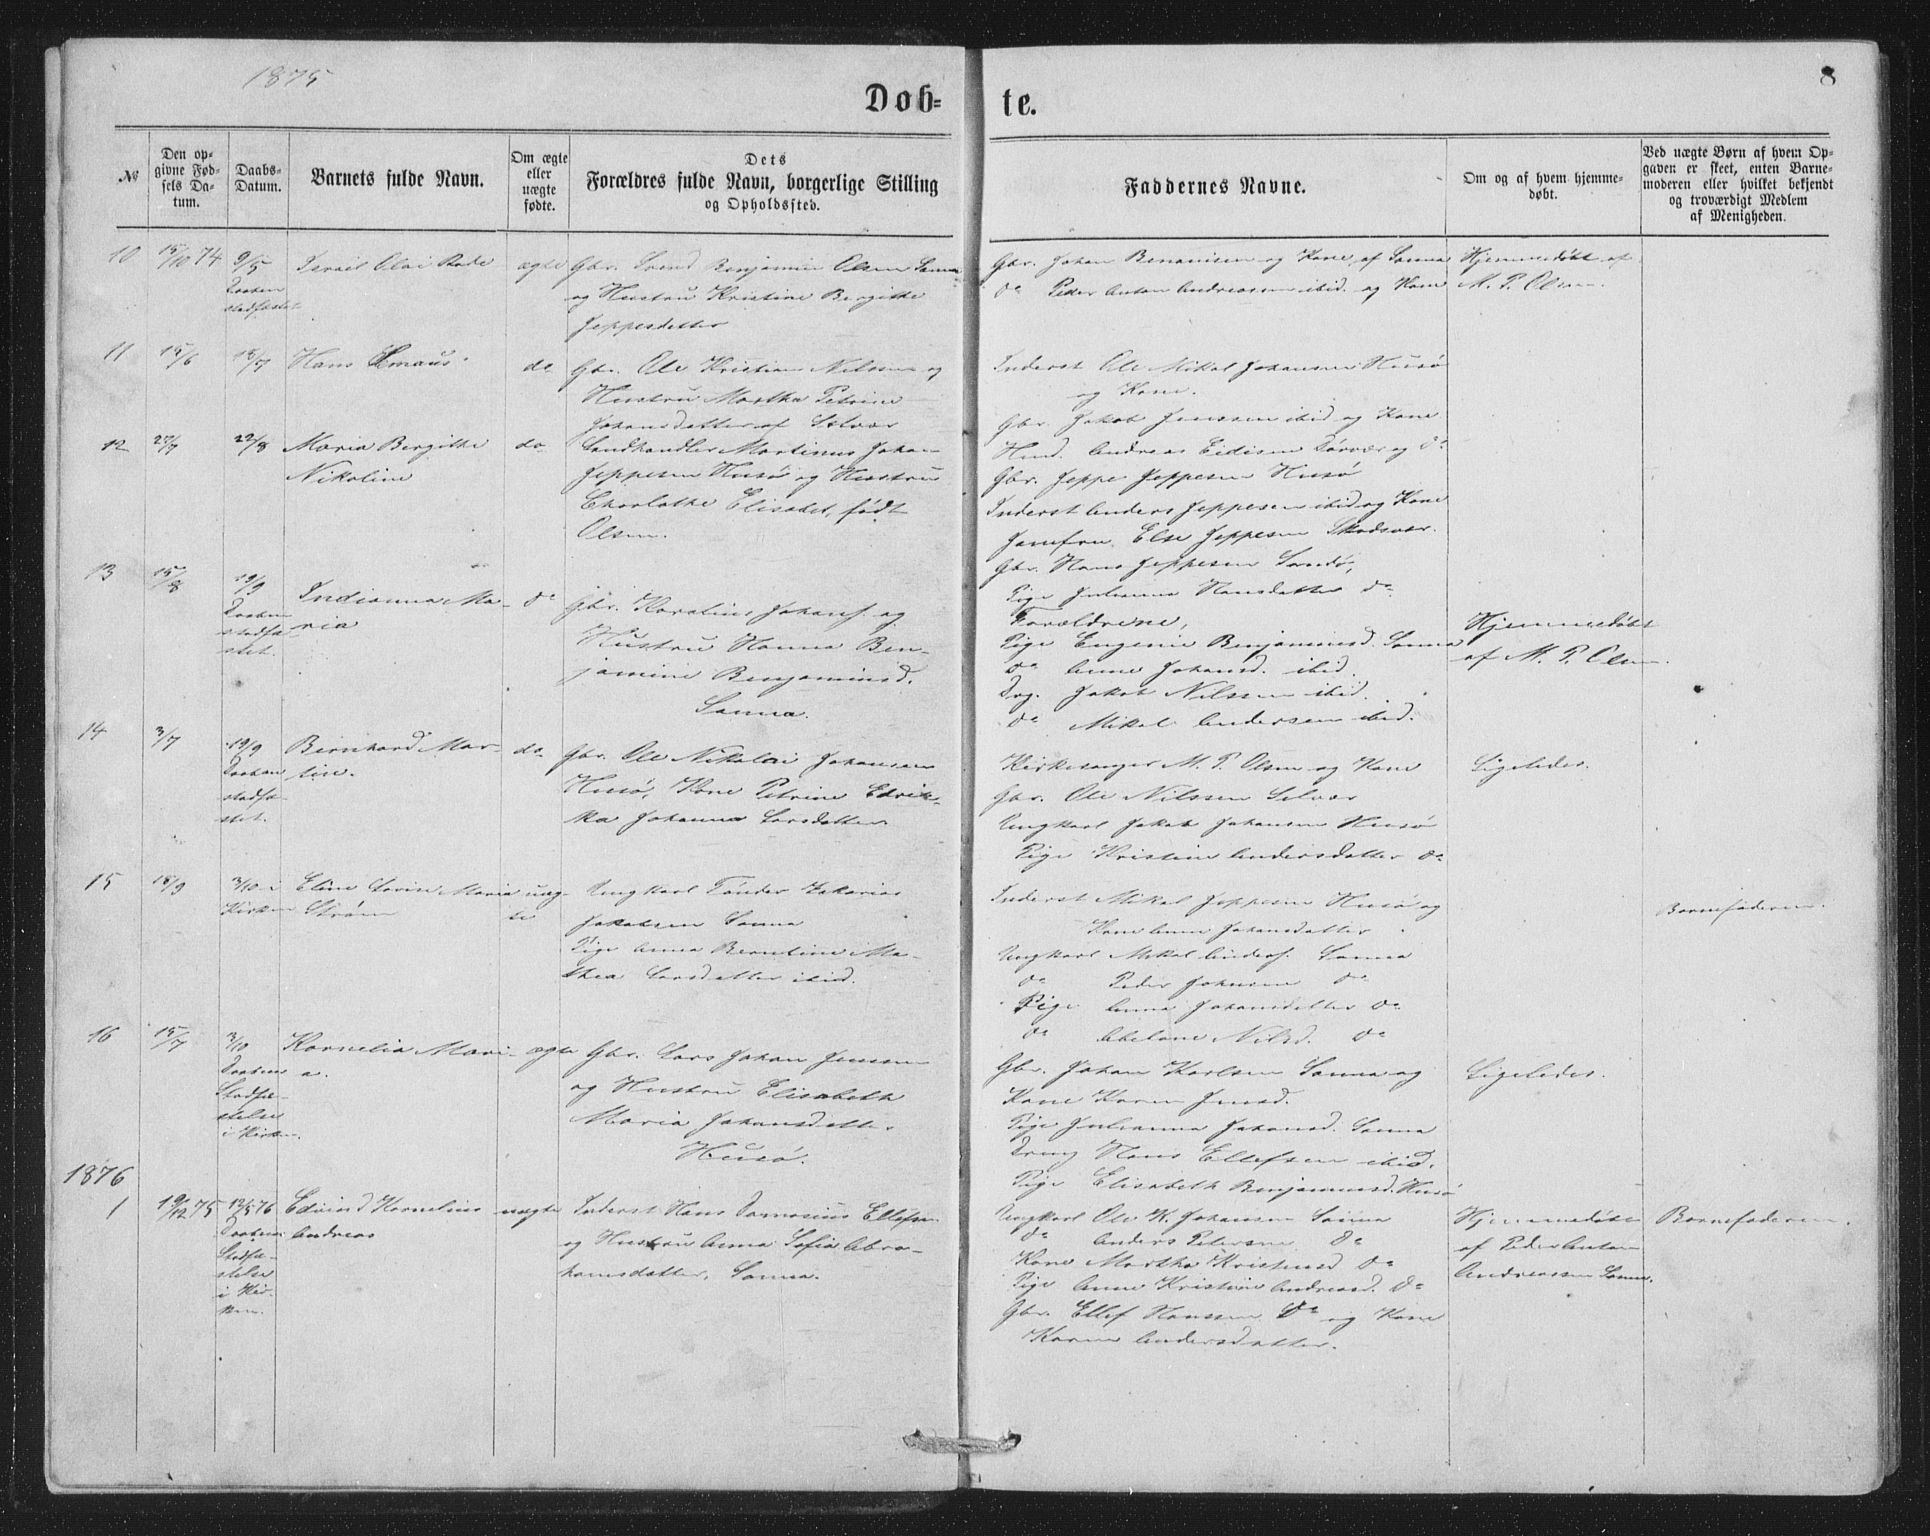 1875
8
Døb-
te.
№
Den op-
givne Fød-
sels Da-
tum.
Daabs-
Datum.
Barnets fulde Navn.
Om ægte
eller
uægte
fødte.
Dets
Forældres fulde Navn, borgerlige Stilling
og Opholdssted.
Faddernes Navne.
Om og af hvem hjemme-
døbt.
Ved uægte Børn af hvem Op-
gaven er skeet, enten Barne-
moderen eller hvilket bekjendt
og troværdigt Medlem
af Menigheden.
10 15/10 74 9/5
Daaben
stadfæstet
Israel Olai
ægte
Gbr. Svend Benjamin Olsen Sanna
og Hustru Kristine Bergithe
Jeppesdatter
Gbr. Johan Benonisen og Kone af Sanna
do Peder Anton Andreassen ibid. og Kone
Hjemmedøbt af
M. P. Olsen.
11 15/6 18/7
Hans Emaus
do
Gbr. Ole Kristian Nilssen og
Hustru Martha Petrine
Johansdatter af Selvær
Inderst Ole Mikal Johansen Husø
og Kone.
Gbr. Jakob Jenssen ibid og Kone
12 27/7 22/8
Maria Bergithe
Nikoline
do
Landhandler Martinus Johan
Jeppesen Husø og Hustru
Charlothe Elisabet, født
Olsen.
Hmd. Andreas Eidisen Dørvær og do
Gbr. Jeppe Jeppesen Husø
Inderst Anders Jeppesen ibid og Kone
Jomfru Else Jeppesen Skadsvær.
Gbr. Hans Jeppesen Sandø,
Pige Julianna Hansdatter do
13 15/8 19/9
Daaben
stadfæ-
stet.
Indianna Ma-
ria
do
Gbr. Karolius Johans. og
Hustru Hanna Ben-
jamine Benjaminsd.
Sanna.
Forældrene,
Pige Eugenie Benjaminsd. Sanna
do Anne Johansd. ibid.
Drg. Jakob Nilssen ibid.
do Mikal Andersen ibid.
Hjemmedøbt
af M. P. Olsen.
14 3/7 19/9
Daaben
stadfæ-
stet.
Bernhard Mar-
tin.
do
Gbr. Ole Nikolai Johansen
Husø, Kone Petrine Edvik-
ka Johanna Larsdatter
Kirkesanger M. P. Olsen og Kone
Gbr. Ole Nilssen Selvær
Ungkarl Jakob Johansen Husø
Pige Kristine Andersdatter do
Ligeledes.
15 18/9 3/10 i
Kirken
Eline Lovise Maria
Strøm
uæg-
te
Ungkarl Tønder Zakarias
Jakobsen Sanna
Pige Anna Berntine Ma-
thea Larsdatter ibid.
Inderst Mikal Jeppesen Husø og
Kone Anne Johansdatter
Ungkarl Mikal Anders. Sanna
do Peder Johnsen do
Pige Anna Johansdatter do
do Abelone Nilsd. do
Barnefaderen.
16 15/7 3/10
Daabens
Stadfæ-
stelse
i Kirken.
Kornelia Mari-
a.
ægte
Gbr. Lars Johan Jenssen
og Hustru Elisabeth
Maria Johansdatter
Husø.
Gbr. Johan Karlsen Sanna og
Kone Karen Jensd.
Pige Julianna Johansd. Sanna
Dreng Hans Ellefsen ibid.
Pige Elisabeth Benjaminsd. Husø
Ligeledes.
1876
1 19/12 75 12/5 76
Daabens
Stadfæ-
stelse
i Kir-
ken.
Edvind Kornelius
Andreas
uægte
Inderst Hans Damasius Ellefsen
og Hustru Anna Sofia Abra-
hamsdatter, Sanna.
Ungkarl Ole K. Johansen Sanna
do Anders Petersen do
Kone Martha Kristensd do
Pige Anne Kristine Andreasd. do
Gbr. Ellef Hanssen do og Kone
Karen Andersdatter.
Hjemmedøbt
af Peder Anton
Andreassen Sanna.
Barnefaderen.